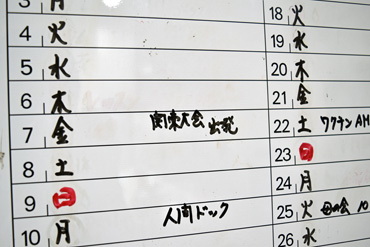 3 月
4 火
5 水
6 木
7 金 関東大会 出発
8 土
9 日
10 月 人間ドック
18 火
19 水
20 木
21 金
22 土 ワクチン AM
23 日
24 月
25 火 母の会 10
26 水